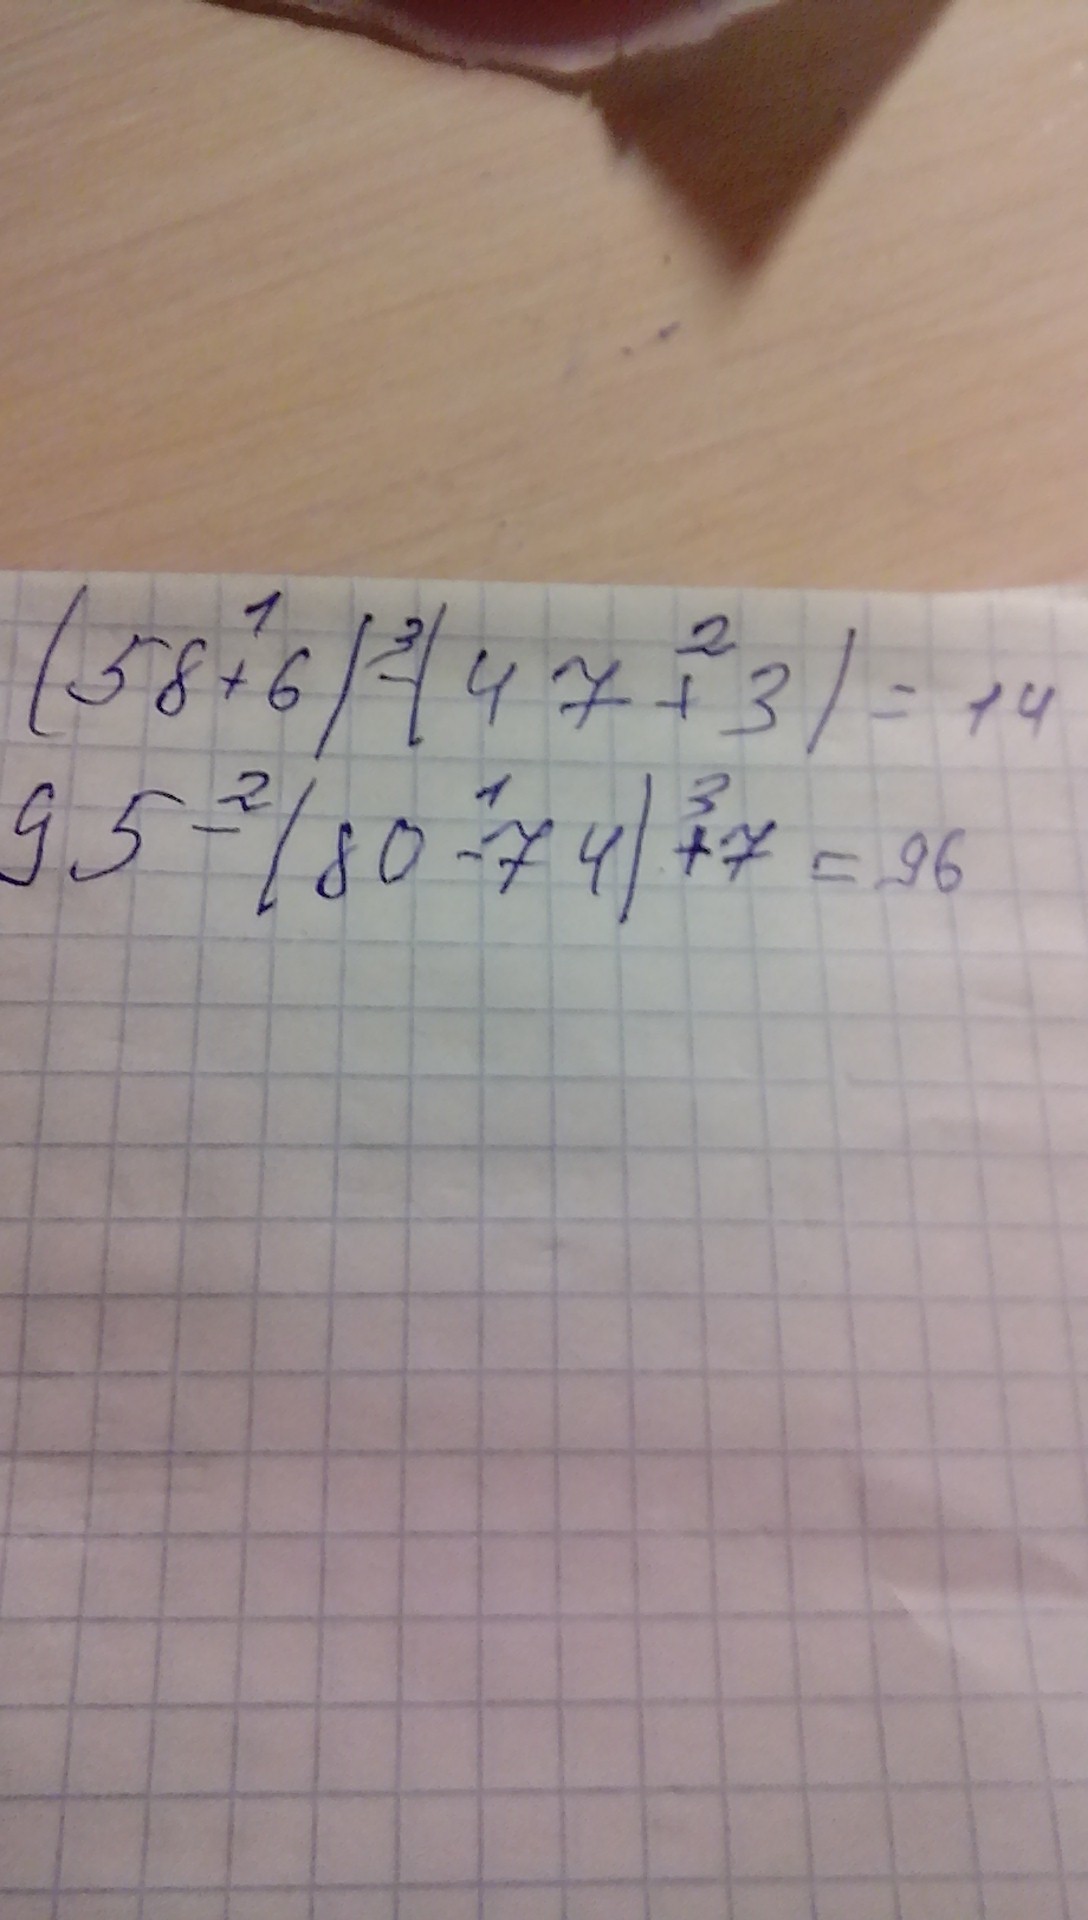 (58+¹6)-³(47+²3)=14
95-²(80-¹74)+³7=96